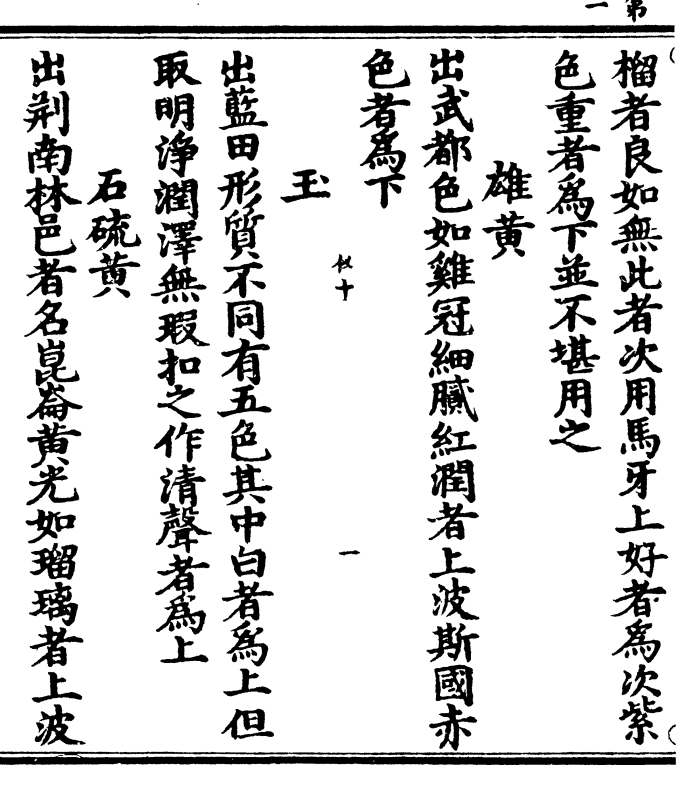 第一
榴者良如無此者次用馬牙上好者為次紫
色重者為下並不堪用之
雄黃
出武都色如雞冠細膩紅潤者上波斯國赤
色者為下
似十
一
玉
出藍田形質不同有五色其中白者為上但
取明淨潤澤無瑕扣之作清聲者為上
石硫黃
出荆南林邑者名崑崙黃光如瑠璃者上波